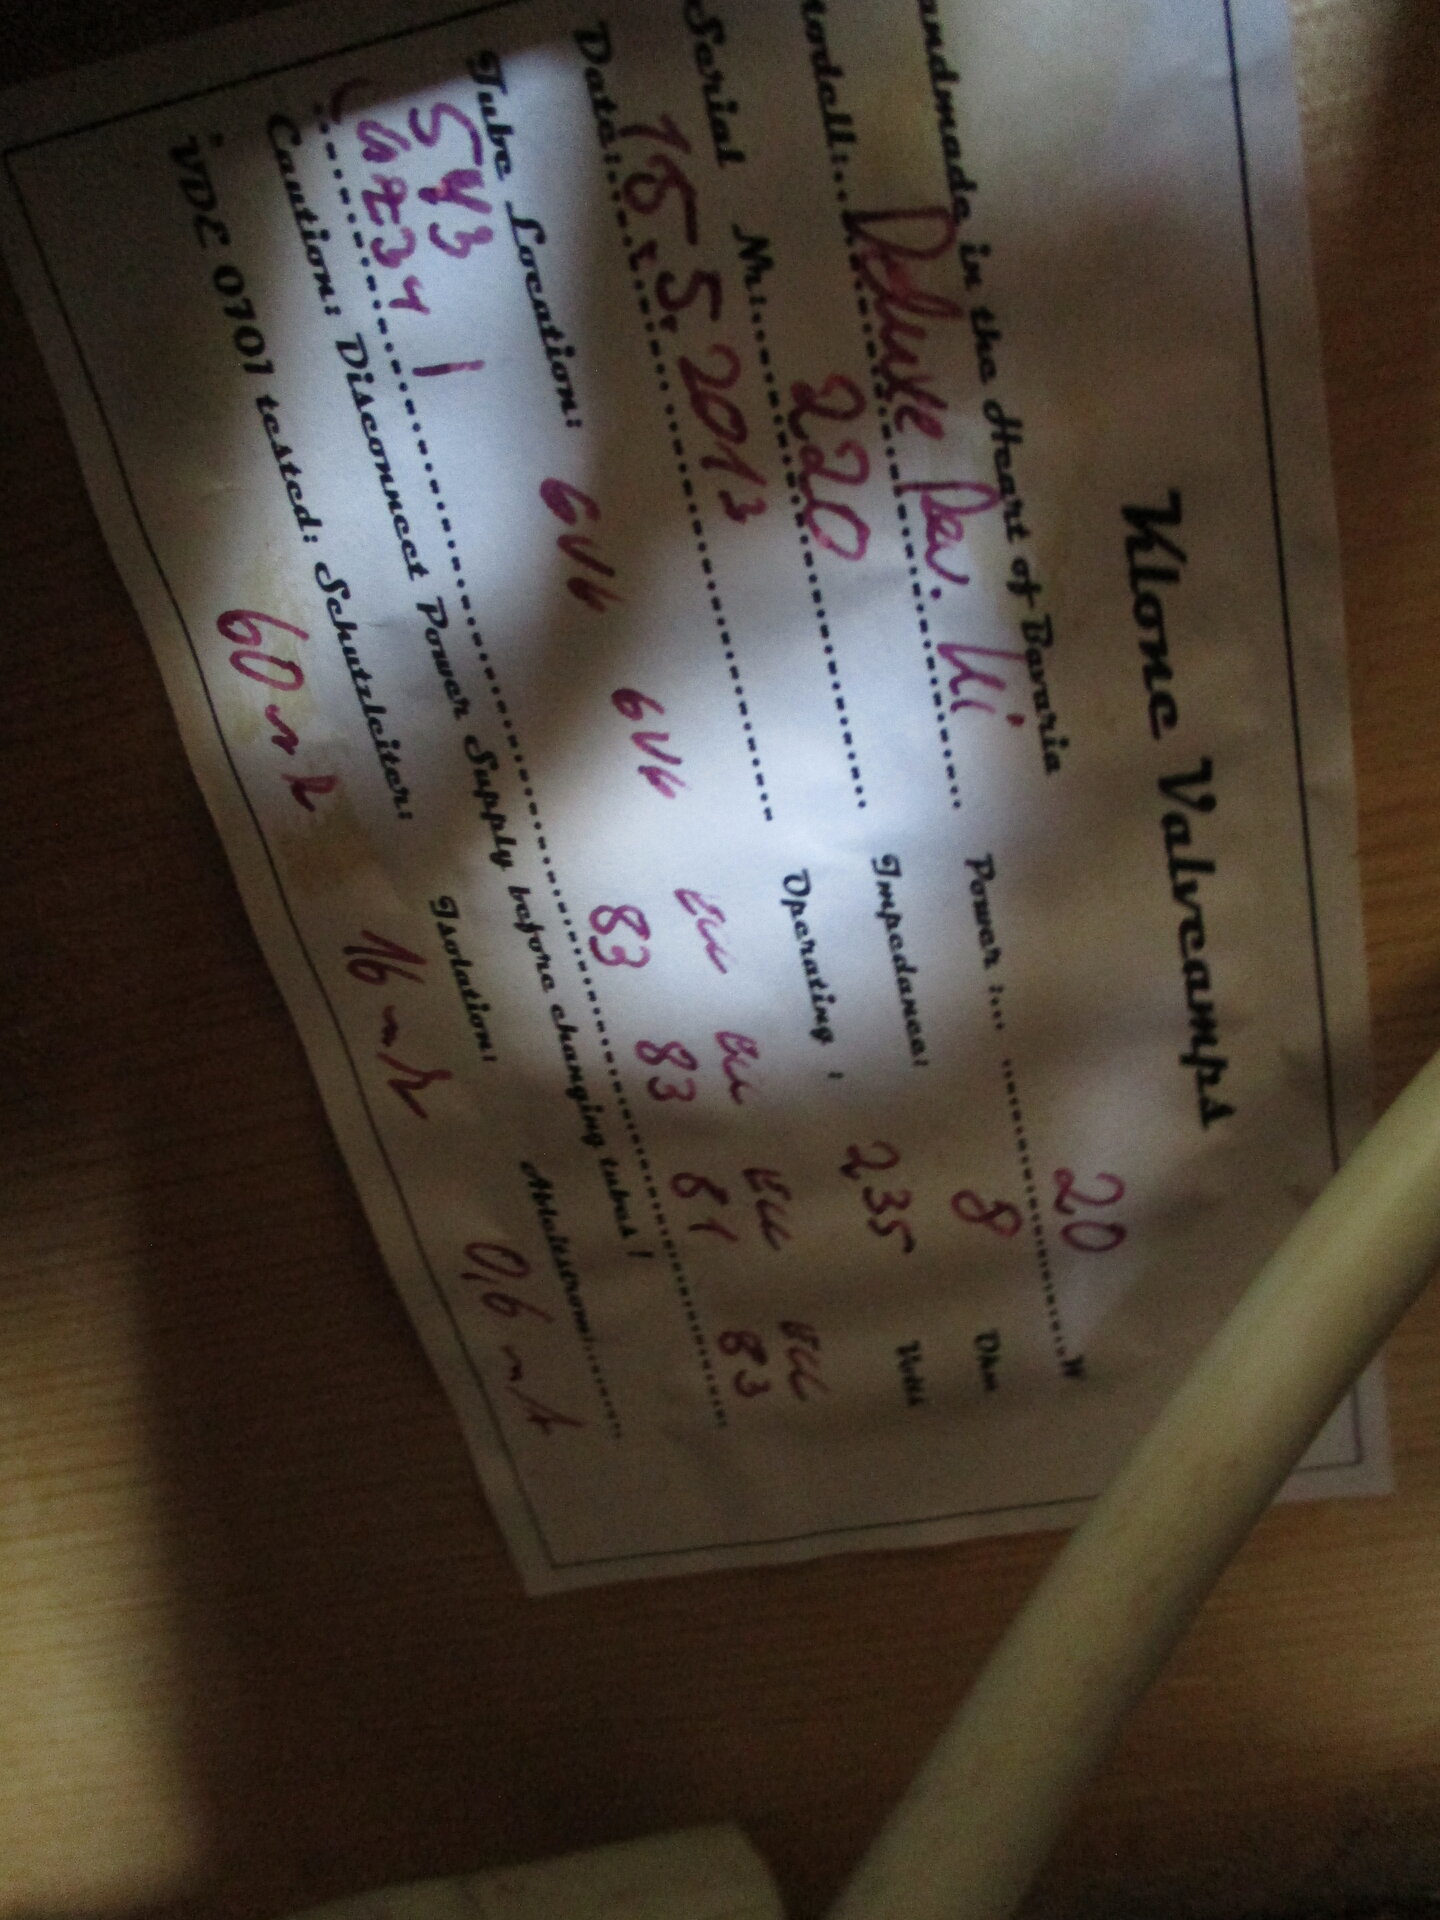 Klone Valveamps
andmade in the Heart of Bavaria
odell: Deluxe Rev. Power: 20 W
Serial Nr: 220 Impedance: 8 Ohm
Date: 15.5.2013 Operating: 235 Volts
Tube Location: 6V6 6V6 ECC 83 ECC 83 ECC 81 ECC 83
5Y3
GZ34
Caution: Disconnect Power Supply before changing tubes!
VDE 0701 tested: Schutzleiter: Isolation: Ableitstrom:
60 16 0,6